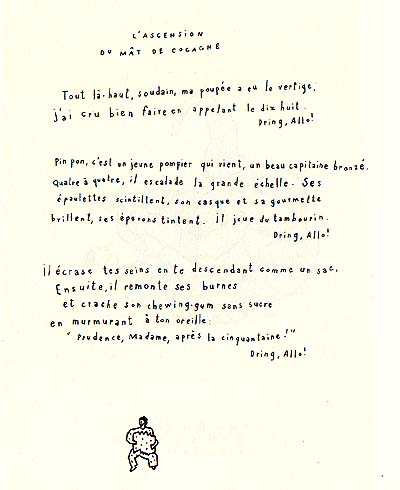 L'ASCENSION
DU MÂT DE COCAGNE
Tout là-haut, soudain, ma poupée a eu le vertige.
j'ai cru bien faire en appelant le dix huit.
Dring, Allo!
Pin pon, c'est un jeune pompier qui vient, un beau capitaine bronzé.
Quatre à quatre, il escalade la grande échelle. Ses
épaulettes scintillent, son casque et sa gourmette
brillent, ses éperons tintent. il joue du tambourin.
Dring, Allo!
il écrase tes seins en te descendant comme un sac.
Ensuite, il remonte ses burnes
et crache son chewing-gum sans sucre
en murmurant à ton oreille:
"Prudence, Madame, après la cinquantaine!"
Dring, Allo!